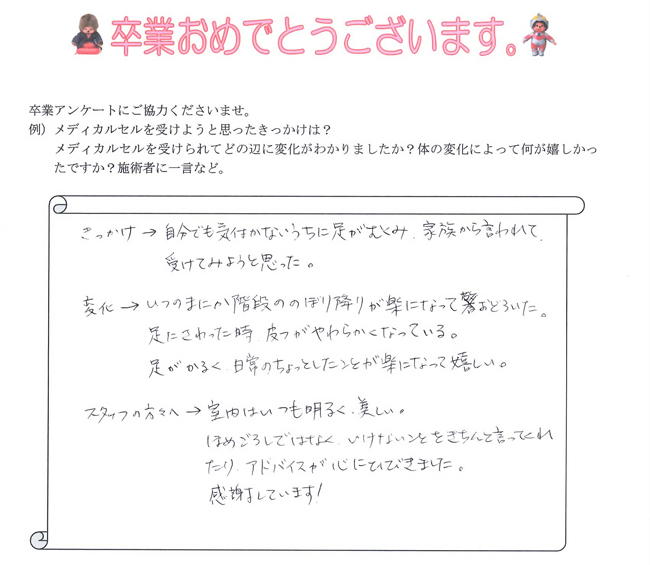 卒業おめでとうございます。
卒業アンケートにご協力くださいませ。
例）メディカルセルを受けようと思ったきっかけは？
メディカルセルを受けられてどの辺に変化がわかりましたか？体の変化によって何が嬉しかっ
たですか？施術者に一言など。
きっかけ → 自分でも気付かないうちに足がむくみ、家族から言われて、
受けてみようと思った。
変化 → いつのまにか階段ののぼり降りが楽になって驚おどろいた。
足にさわった時、皮フがやわらかくなっている。
足がかるく、日常のちょっとしたことが楽になって嬉しい。
スタッフの方々へ → 室内はいつも明るく、美しい。
ほめごろしではなく、いけないことをきちんと言ってくれ
たり、アドバイスが心にひびきました。
感謝しています！